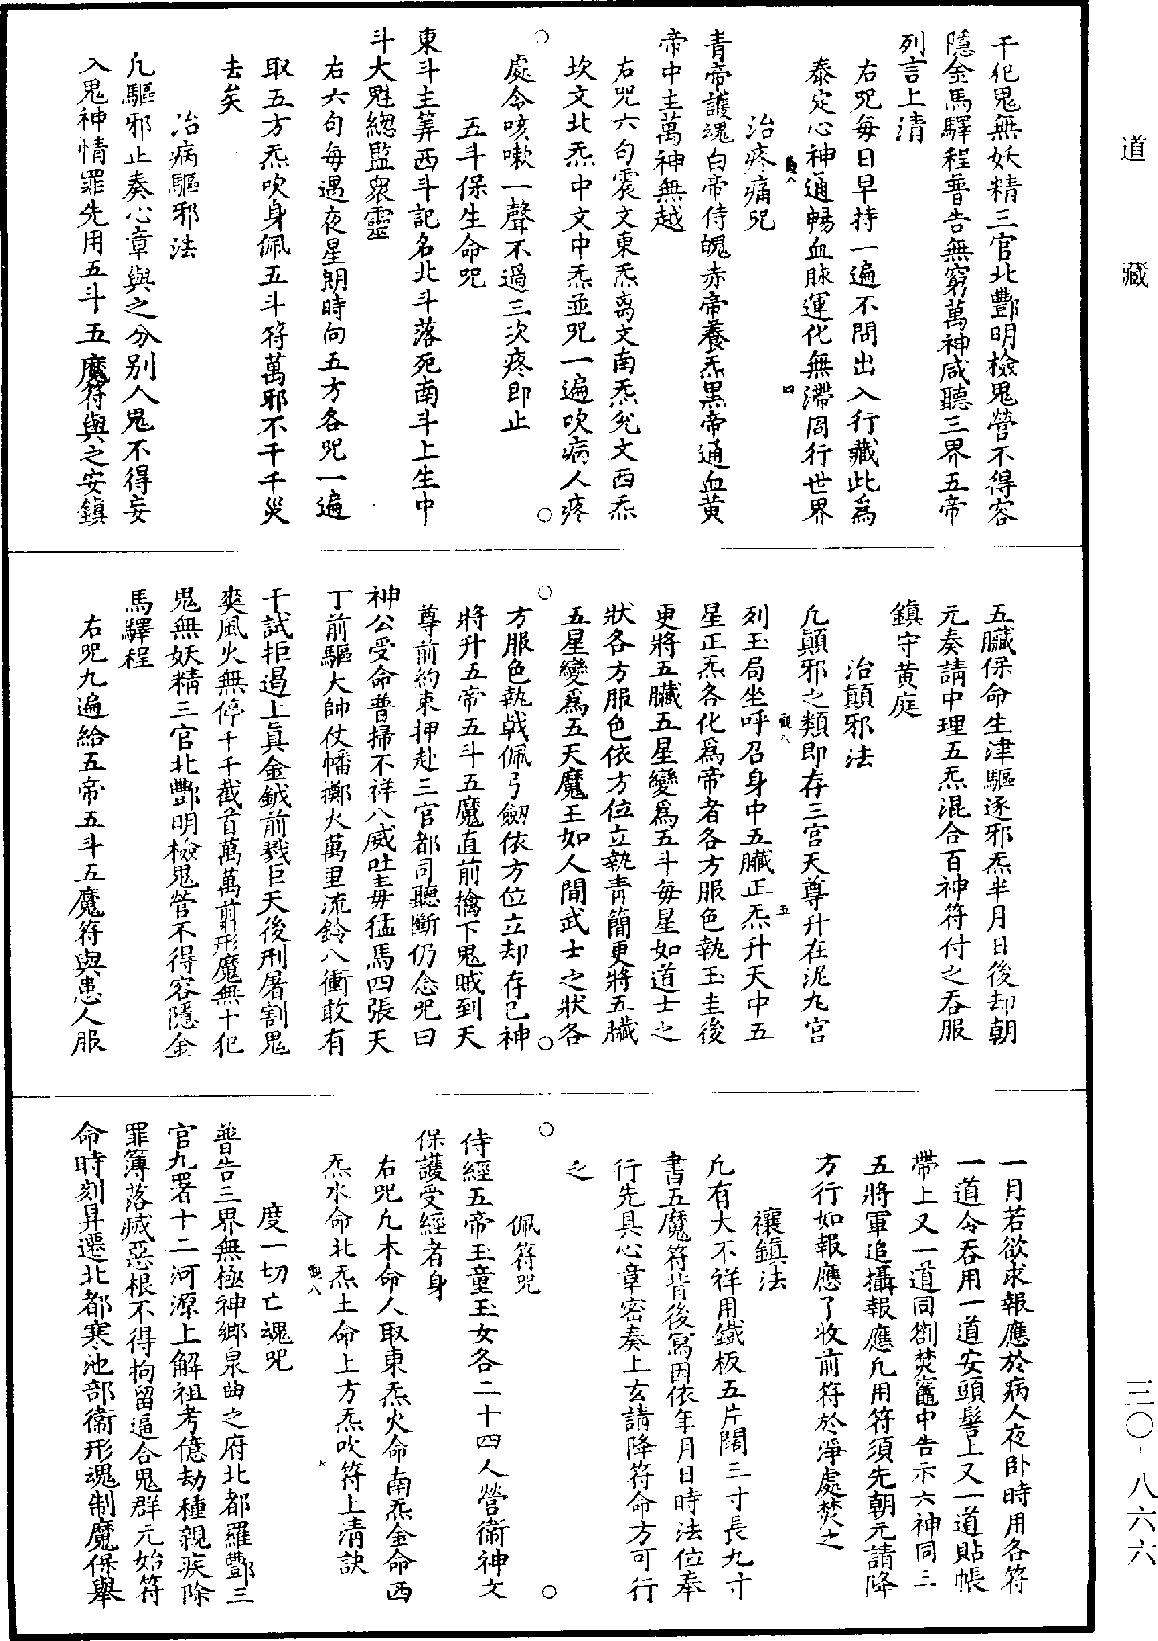 道藏
三〇-八六六
千犯鬼無妖精三官北酆明檢鬼營不得容
隱金馬驛程普告無窮萬神咸聽三界五帝
列言上清
右咒每日早持一遍不問出入行藏此爲
泰定心神通暢血脉運化無滯周行世界
治疼痛咒
青帝護魂白帝侍魄赤帝養炁黑帝通血黃
帝中主萬神無越
右咒六句震文東炁离文南炁兌文西炁
坎文北炁中文中炁並咒一遍吹病人疼
處令咳嗽一聲不過三次疼即止
五斗保生命咒
東斗主筭西斗記名北斗落死南斗上生中
斗大魁總監衆靈
右六句每遇夜星朗時向五方各咒一遍
取五方炁吹身佩五斗符萬邪不干千災
去矣
治病驅邪法
凡驅邪止奏心章與之分别人鬼不得妄
入鬼神情罪先用五斗五魔符與之安鎮
五臟保命生津驅逐邪炁半月日後却朝
元奏請中理五炁混合百神符付之吞服
鎮守黄庭
治顛邪法
凡顛邪之類即存三宫天尊升在泥丸宫
列玉局坐呼召身中五臟正炁升天中五
星正炁各化爲帝者各方服色執玉圭後
更將五臟五星變爲五斗每星如道士之
狀各方服色依方位立執青簡更將五臟
五星變爲五天魔王如人間武士之狀各
方服色執戟佩弓劒依方位立却存己神
將升五帝五斗五魔直前擒下鬼賊到天
尊前約束押赴三官都同聽斷仍念咒曰
神公受命普掃不祥八威吐毒猛馬四張天
丁前驅大帥仗幡擲火萬里流鈴八衝敢有
干試拒遏上真金鉞前戮巨天後刑屠割鬼
爽風火無停千千截首萬萬剪形魔無十犯
鬼無妖精三官北酆明檢鬼營不得容隱金
馬驛程
右咒九遍給五帝五斗五魔符與患人服
一月若欲求報應於病人夜卧時用各符
一道令吞用一道安頭髻上又一道貼帳
帶上又一道同劄焚竈中告示六神同三
五將軍追攝報應凡用符須先朝元請降
方行如報應了收前符於淨處焚之
禳鎮法
凡有大不祥用鐵板五片闊三寸長九寸
書五魔符背後寫因依年月日時法位奉
行先具心章密奏上玄請降符命方可行
之
佩符咒
侍經五帝玉童玉女各二十四人營衛神文
保護受經者身
右咒凡木命人取東炁火命南炁金命西
炁水命北炁土命上方炁吹符上清訣
度一切亡魂咒
普告三界無極神鄉泉曲之府北都羅酆三
官九署十二河源上解祖考億劫種親疾除
罪簿落滅惡根不得拘留逼合鬼群元始符
命時刻昇遷北都寒池部衛形魂制魔保舉